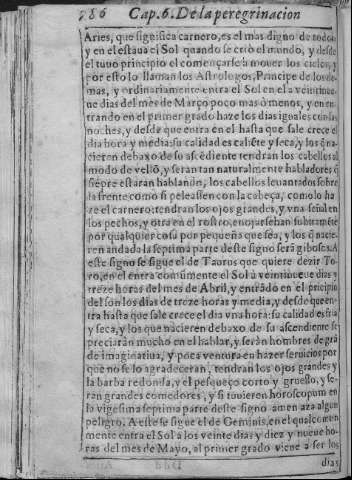 786 Cap. 6. De la peregrinacion
Aries, que significa carnero, es el mas digno de todos
y en el estaua el Sol quando se criò el mundo, y desde
el tuuo principio el començarse a mouer los cielos, y
por esto lo llaman los Astrologos, Principe de los de-
mas, y ordinariamente entra el Sol en el a veintinue-
ue dias del mes de Março poco mas ò menos, y en en
trando en el primer grado haze los dias iguales con las
noches, y desde que entra en el hasta que sale crece el
dia hora y media; su calidad es caliẽte y seca, y los q̃ na-
cieren debaxo de su ascẽdiente tendran los cabellos al
modo de vello, y seran tan naturalmente habladores q̃
siẽpre estaran hablando, los cabellos leuantados sobre
la frente como si peleassen con la cabeça, como lo ha-
ze el carnero: tendran los ojos grandes, y vna señal en
los pechos, y otra en el rostro, enojarsehan subitamẽte
por qualquier cosa por pequeña que sea, y los q̃ nacie-
ren andada la septima parte deste signo serã gibosos. A
este signo se sigue el de Taurus que quiere dezir To-
ro, en el entra comũmente el Sol a veintinueue dias y
treze horas del mes de Abril, y entrãdo en el prĩcipio
del son los dias de treze horas y media, y desde que en-
tra hasta que sale crece el dia vna hora: su calidad es fria
y seca, y los que nacieren debaxo de su ascendiente se
preciarán mucho en el hablar, y serãn hombres de grã
de imaginatiua, y poca ventura en hazer seruicios por
que no se lo agradeceran, tendran los ojos grandes y
la barba redonda, y el pesqueço corto y gruesso, y se-
ran grandes comedores, y si tuuieren horoscopum en
la vigesima septima parte deste signo amenaza algun
peligro. A este se sigue el de Geminis, en el qual comun
mente entra el Sol a los veinte dias y diez y nueue ho-
ras del mes de Mayo, al primer grado viene a ser los
dias